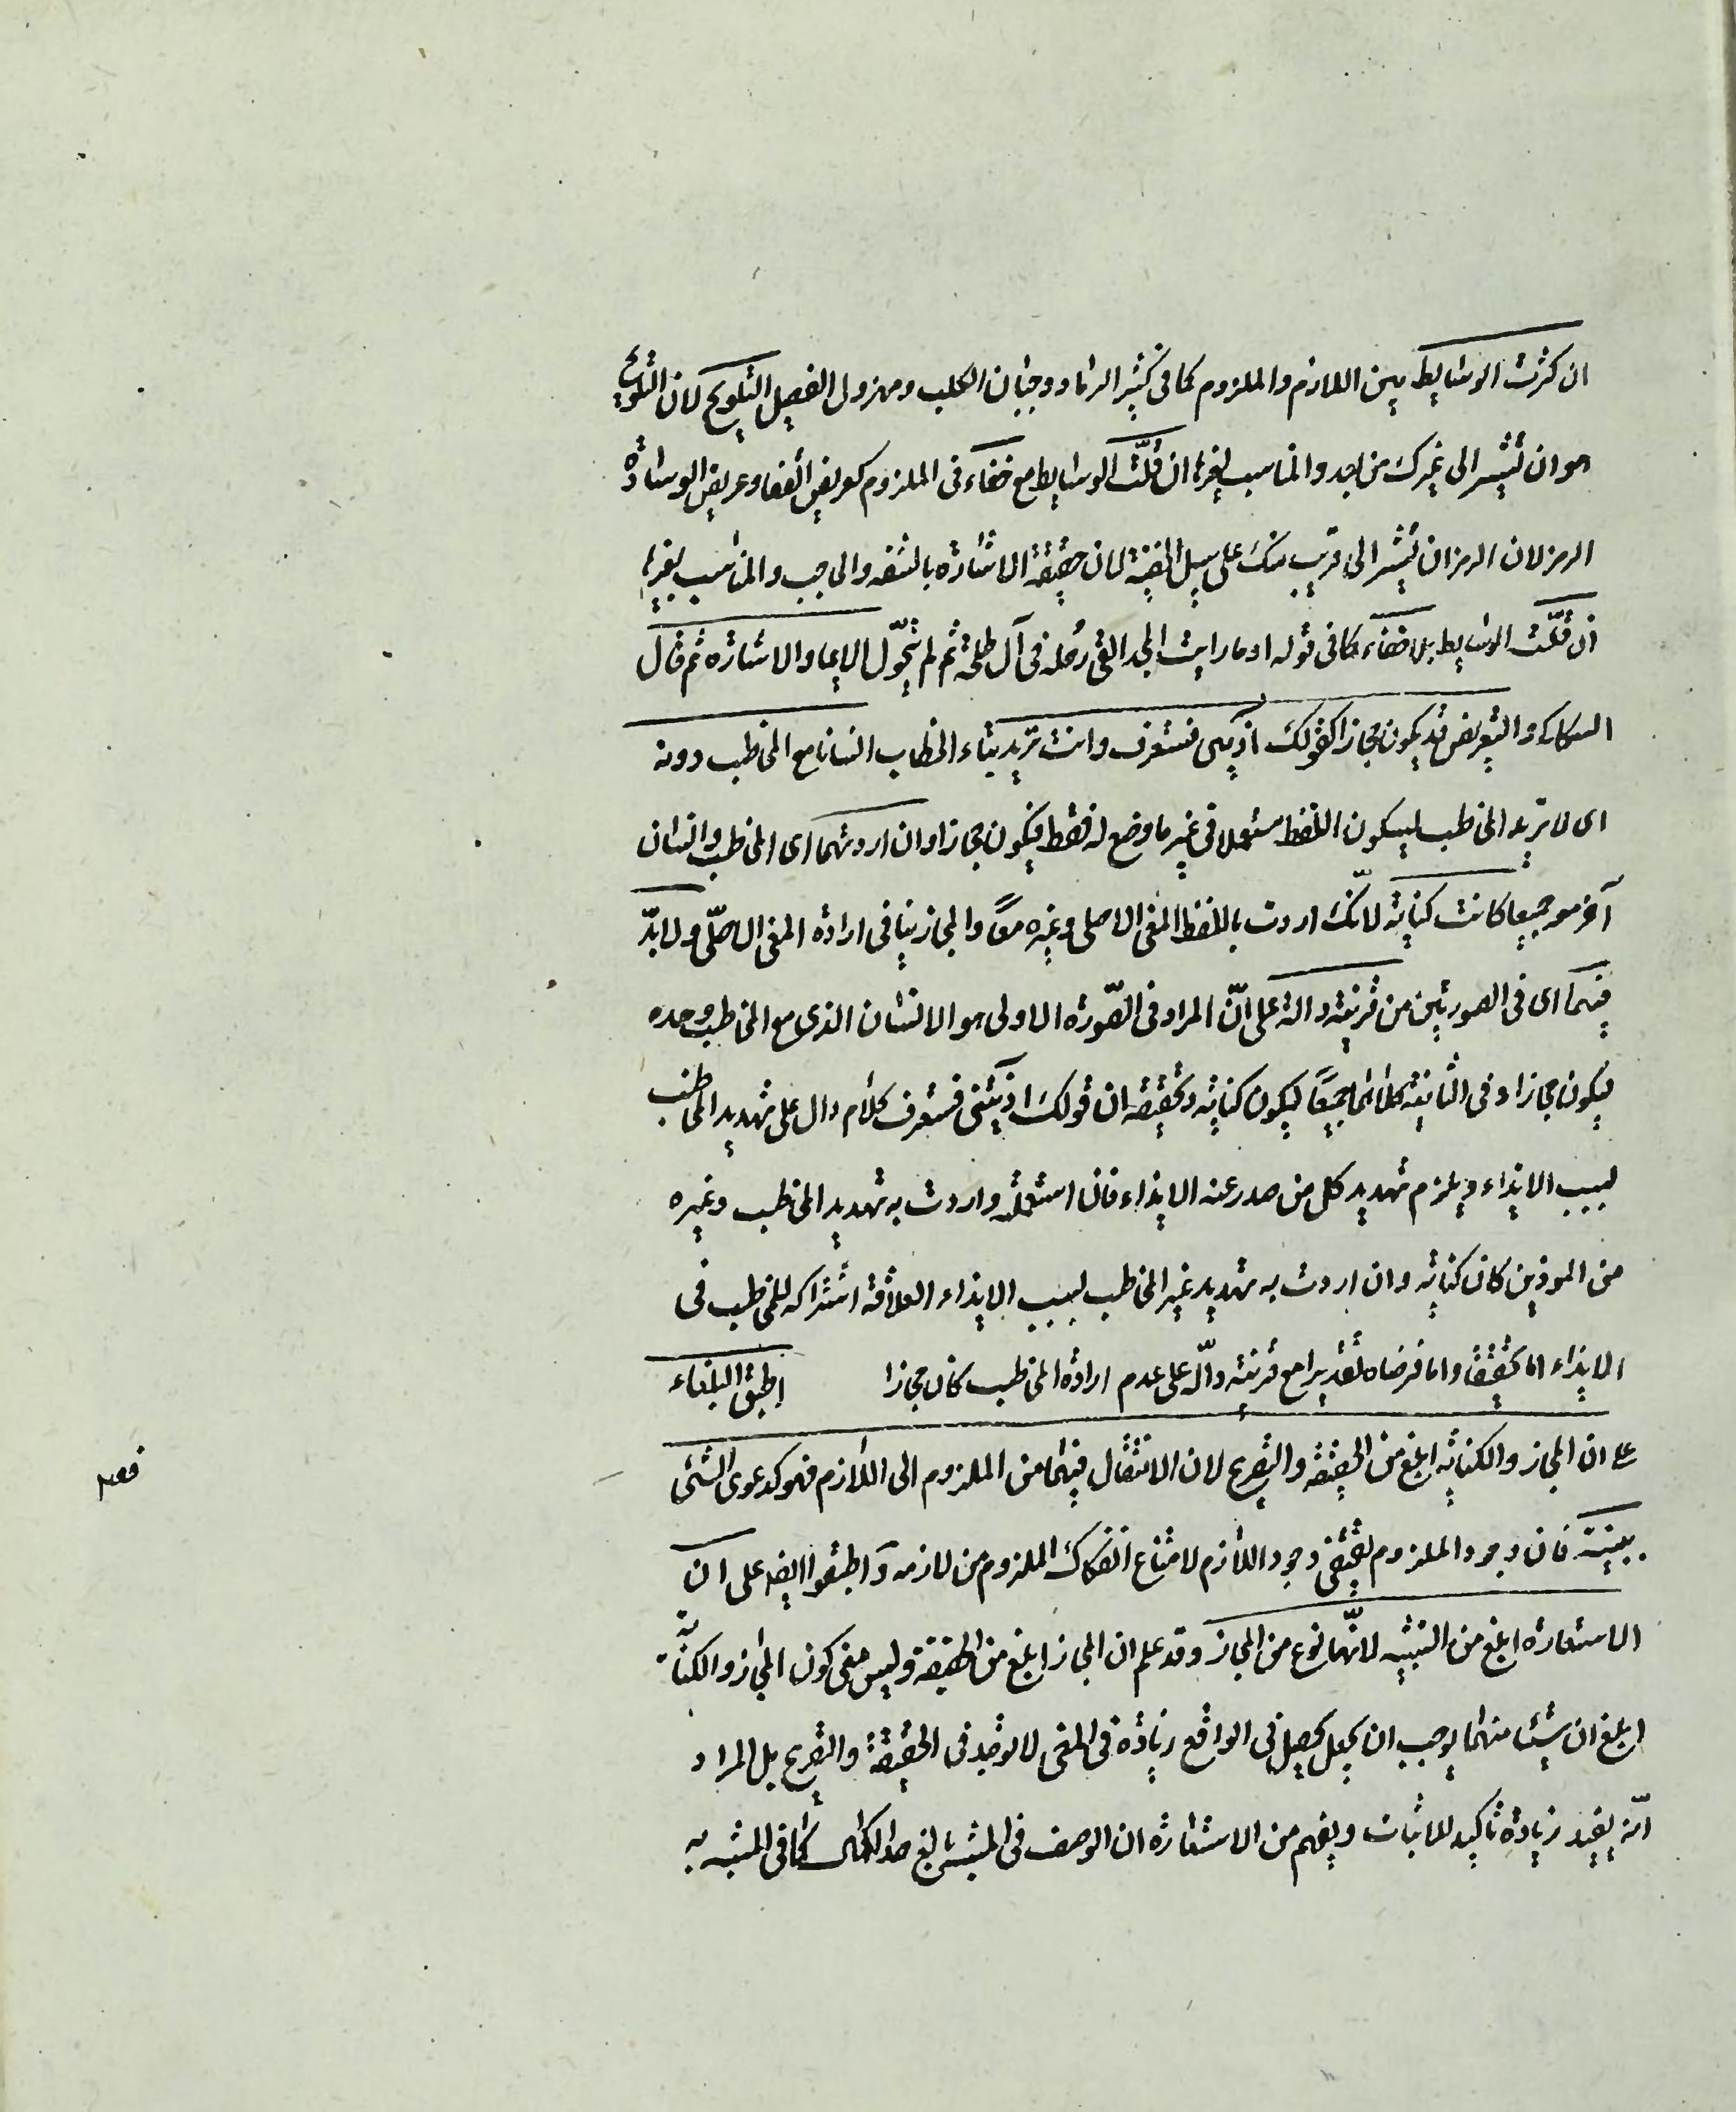 ان كثرت الوسايط بين اللازم والملزوم كما في كثير الرماد وجبان الكلب ومهزول الفصيل التلويح لان التلويح
هو ان تشير الى غيرك من بعد والمناسب لغيرها ان قلّت الوسايط مع خفاء في الملزوم كعريض القفا وعريض الوسادة
الرمز لان الرمز ان تشير الى قريب منك على سبيل الخفية لان حقيقة الاشارة بالشفه والحاجب والمناسب لغيرها
ان قلّت الوسايط بلا خفاء كما في قوله او ما رايت المجد القى رحله في آل طلحة ثم لم يتحوّل الايما والاشارة ثم قال
السكاكى والتعريض قد يكون مجازا كقولك اذيتنى فستعرف وانت تريد بتاء الخطاب انسانا مع المخاطب دونه
اى لا تريد المخاطب ليكون اللفظ مستعملا في غير ما وضع له فقط فيكون مجازا وان اردتهما اى المخاطب وانسان
آخر معه جميعا كانت كناية لانّك اردت باللفظ المعنى الاصلى وغيره معًا والمجاز ينافى ارادة المعنى الاصلّى ولا بدّ
فيهما اى في الصورتين من قرينة دالة على انّ المراد في الصّورة الاولى هو الانسان الذى مع المخاطب وحده
ليكون مجازا وفى الثانية كلاهما جميعًا ليكون كناية وتحقيقه ان قولك اذيتنى فستعرف كلام دال على تهديد المخاطب
بسبب الايذاء ويلزم تهديد كل من صدر عنه الايذاء فان استعملته واردت به تهديد المخاطب وغيره
من الموذين كان كناية وان اردت به تهديد غير المخاطب بسبب الايذاء العلاقة اشتراكه للمخاطب في
الايذاء اما تحقيقا واما فرضا وتقديرا مع قرينة دالّة على عدم ارادة المخاطب كان مجازا اطبق البلغاء
على ان المجاز والكناية ابلغ من الحقيقة والتصريح لان الانتقال فيهما من الملزوم الى اللازم فهو كدعوى الشئ
ببينة فان وجود الملزوم يقتضى وجود اللازم لامتناع انفكاك الملزوم من لازمه واطبقوا ايضا على ان
الاستعارة ابلغ من التشبيه لانّها نوع من المجاز وقد علم ان المجاز ابلغ من الحقيقة وليس معنى كون المجاز والكناية
ابلغ ان شيئا منهما يوجب ان يجعل يحصل في الواقع زيادة في المعنى لا توجد في الحقيقة والتصريح بل المراد
انّه يفيد زيادة تاكيد للاثبات ويفهم من الاستعارة ان الوصف في المشبه بالغ حد الكمال كما في المشبه به